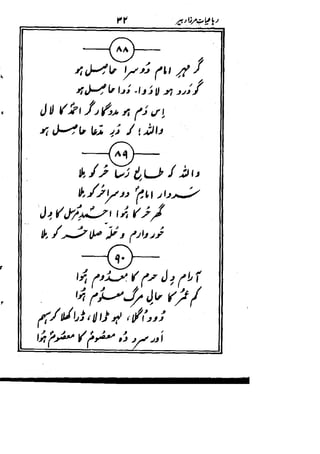 رباعیات مرزا دبیر ۳۲
۸۸
گر مہر امام دوسرا حاصل ہو
گو درد ہو لا دوا، دوا حاصل ہو
اس دم ہو مددگار گر احمدؐ کا لال
واللہ! کہ دُرِ مدعا حاصل ہو
۸۹
واللہ کہ طالع رسا حُر کو ملا
سردار امامِ دوسرا حُر کو ملا
گھر حُر کا ہُوا احمدِ مرسل کا دل
حور و ارم و حلّہ صلا حُر کو ملا
۹۰
آرام دلِ حرم کا معدوم ہُوا
کم عمر کا حال مرگ معلوم ہُوا
دُودھ اُگلا، لہو ڈالا، ڈرا کھلا کر سہم
اور سرد وہ معصوم کا معصوم ہُوا